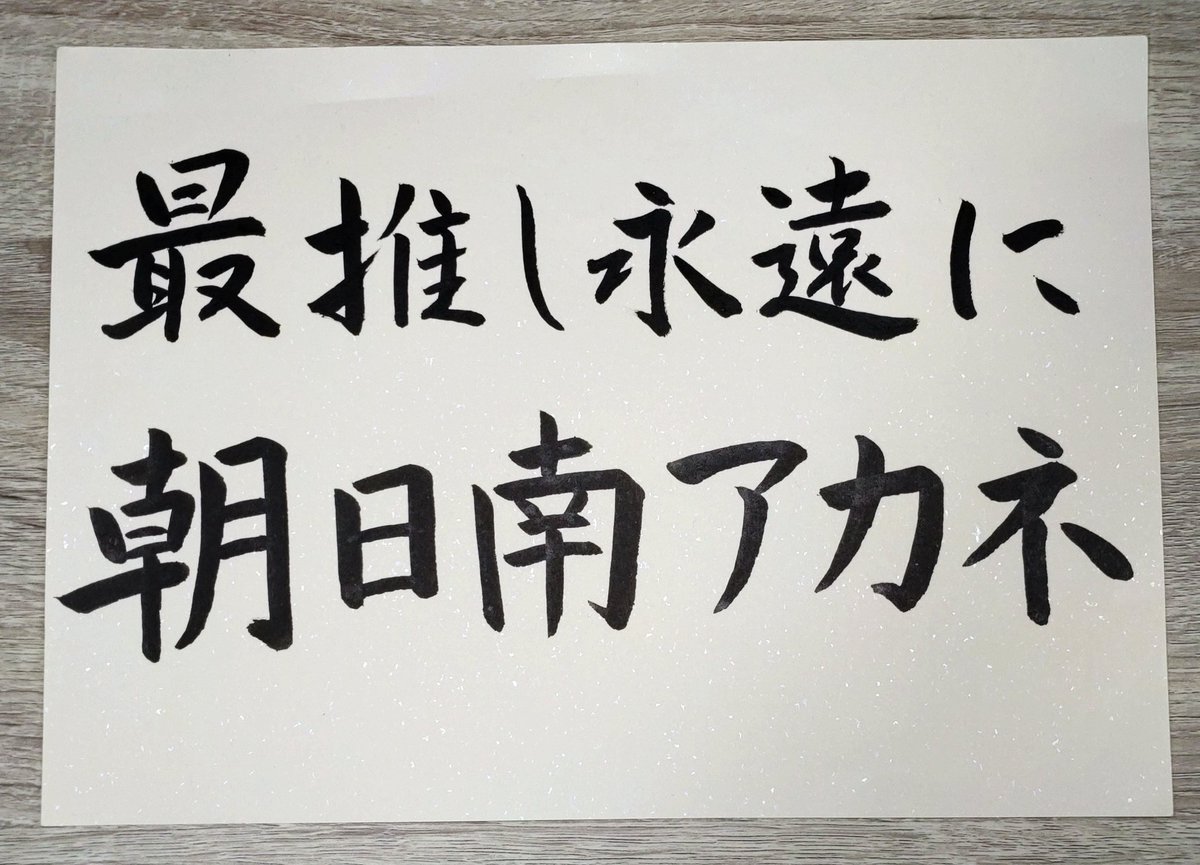 最推し永遠に
朝日南アカネ